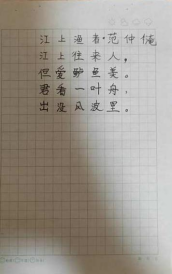 江上渔者·范仲俺
江上往来人，
但爱鲈鱼美。
君看一叶舟，
出没风波里。